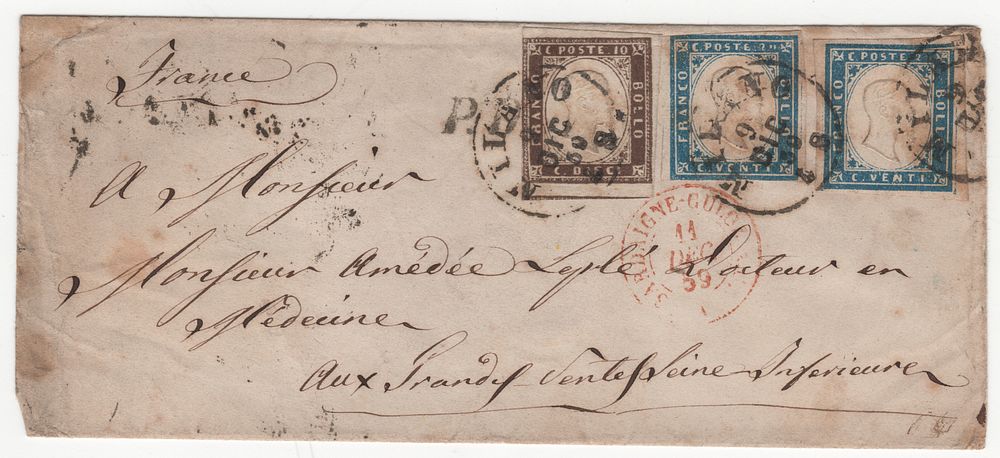 France
C. POSTE 10
FRANCO
BOLLO
C. DIECI
C. POSTE 20
FRANCO
BOLLO
C. VENTI
C. POSTE 2
FRANCO
BOLLO
C. VENTI
P.D.
MILANO
9
DIC
59
8
MILANO
9
DIC
8
SARDAIGNE-CULOZ
11
DEC
59
A Monsieur
Monsieur Amédée Leplé Docteur en
Médecine
Aux Grandes Ventes Seine Inferieure